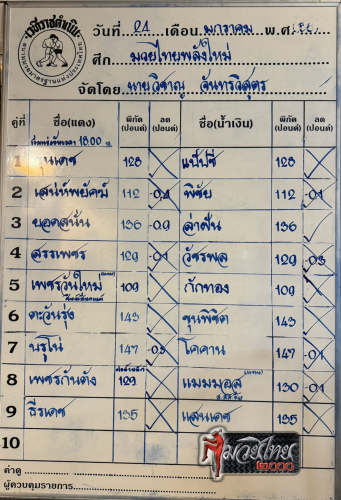 เวทีราชดำเนิน
วันที่ 21 เดือน มกราคม พ.ศ.
ศึก มวยไทยพลังใหม่
จัดโดย นายวิชาญ จันทรวิสุตร
คู่ที่ ชื่อ(แดง) พิกัด (ปอนด์) ลด (ปอนด์) ชื่อ(น้ำเงิน) พิกัด (ปอนด์) ลด (ปอนด์)
18.00 น.
1 ขุนเดช 128 แป๊ปซี่ 128
2 เสน่ห์พยัคฆ์ 112 พิชัย 112 -0.1
3 ยอดสนั่น 136 -0.9 ล่าฝัน 136
4 สรรเพชร 129 -0.1 วัชรพล 129 -0.3
5 เพชรวันใหม่ 109 กักทอง 109
6 ตะวันรุ่ง 143 ขุนพิชิต 143
7 บรูโน่ 147 -0.3 โคคาน 147 -0.1
8 เพชรกันตัง 129 แมมมอส 130 -0.1
9 ธีรเดช 135 แสนเดช 135
10
ค่าดู
ผู้ควบคุมรายการ
มวยไทย
๒๐๐๐